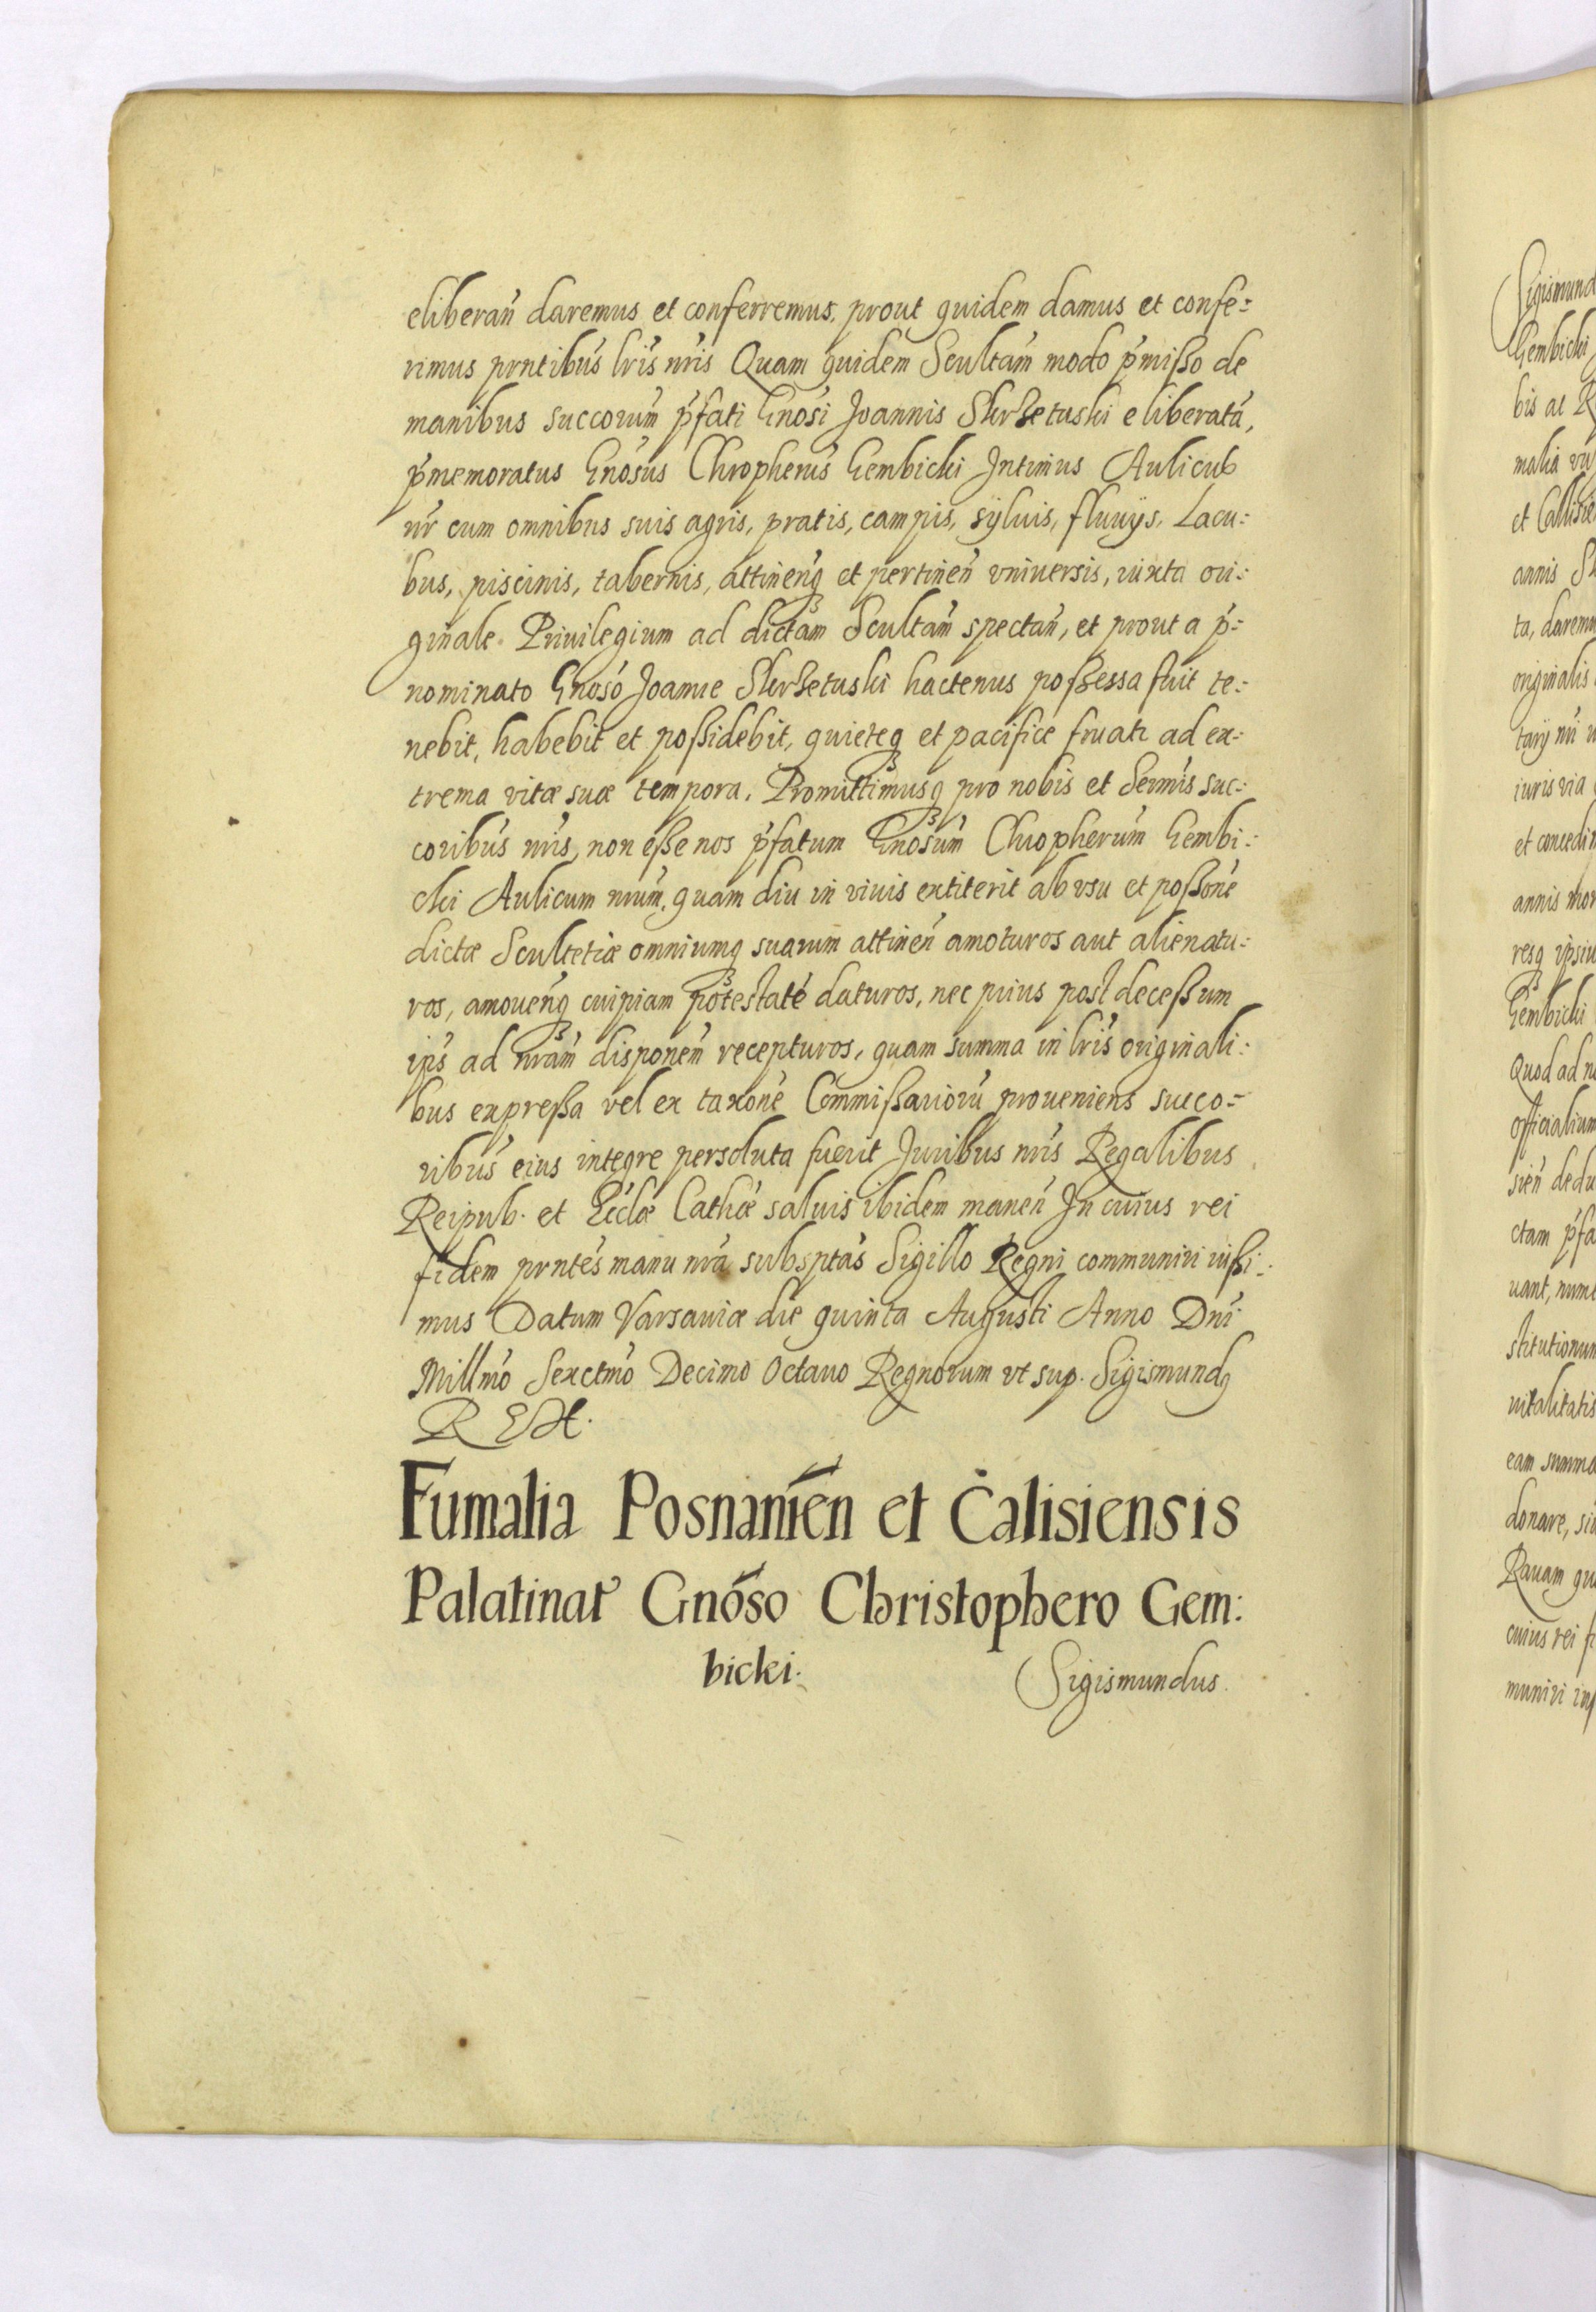 eliberan̄ daremus et conferremus, prout quidem damus et confe=
rimus prntibus lris nris Quam quidem Scultam modo pmißo de
manibus succorum pfati Gnosi Joannis Skrzetuski eliberatā,
pmemoratus Gnosus Chropherus Gembicki Intimus Aulicus
nr cum omnibus suis agris, pratis, campis, sÿluis, fluuÿs, Lacu:
bus, piscinis, tabernis, attinenq₃ et pertinen̄ vniuersis, iuxta ori:
ginale Priuilegium ad dictam Scultam spectan̄, et prout a p:
nominato Gnoso Joanne Skrzetuski hactenus poßessa fuit te:
nebit, habebit et poßidebit, quieteq₃ et pacifice fruatr ad ex:
trema vitæ suæ tempora. Promittimusq₃ pro nobis et Sermis suc:
coribus nris, non eße nos pfatum Gnosum Chropherum Gembi:
cki Aulicum nrum, quam diu in viuis extiterit ab vsu et poßone
dictæ Scultetiæ omniumq₃ suarum attinen̄ amoturos aut alienatu:
ros, amouenq₃ cuipiam potestatē daturos, nec prius post deceßum
ips ad nram disponem recepturos, quam summa in lris originali:
bus expreßa vel ex taxone Commißariorū proueniens succo=
ribus eius integre persoluta fuerit Juribus nris Regalibus
Reipub. et Ecclæ Cathæ saluis ibidem manen̄ In cuius rei
fidem prntes manu nra subsptas Sigillo Regni communiri iußi:
mus Datum Varsauiæ die quinta Augusti Anno Dni
Millmo Sexctmo Decimo Octauo Regnorum vt sup. Sigismundq
R
Fumalia Posnanien̄ et Calisiensis
Palatinat Gnoso Christophero Gem:
bicki.
Sigismundus.
Gembicki
bis at
malia
et
annis
ta,
originalis
iuris via
annis
resq₃
Gembicki
Quod ad
officialium
ctam
uant,
vitalitatis
eam summa
donare,
Rauam
cuius rei
muniri